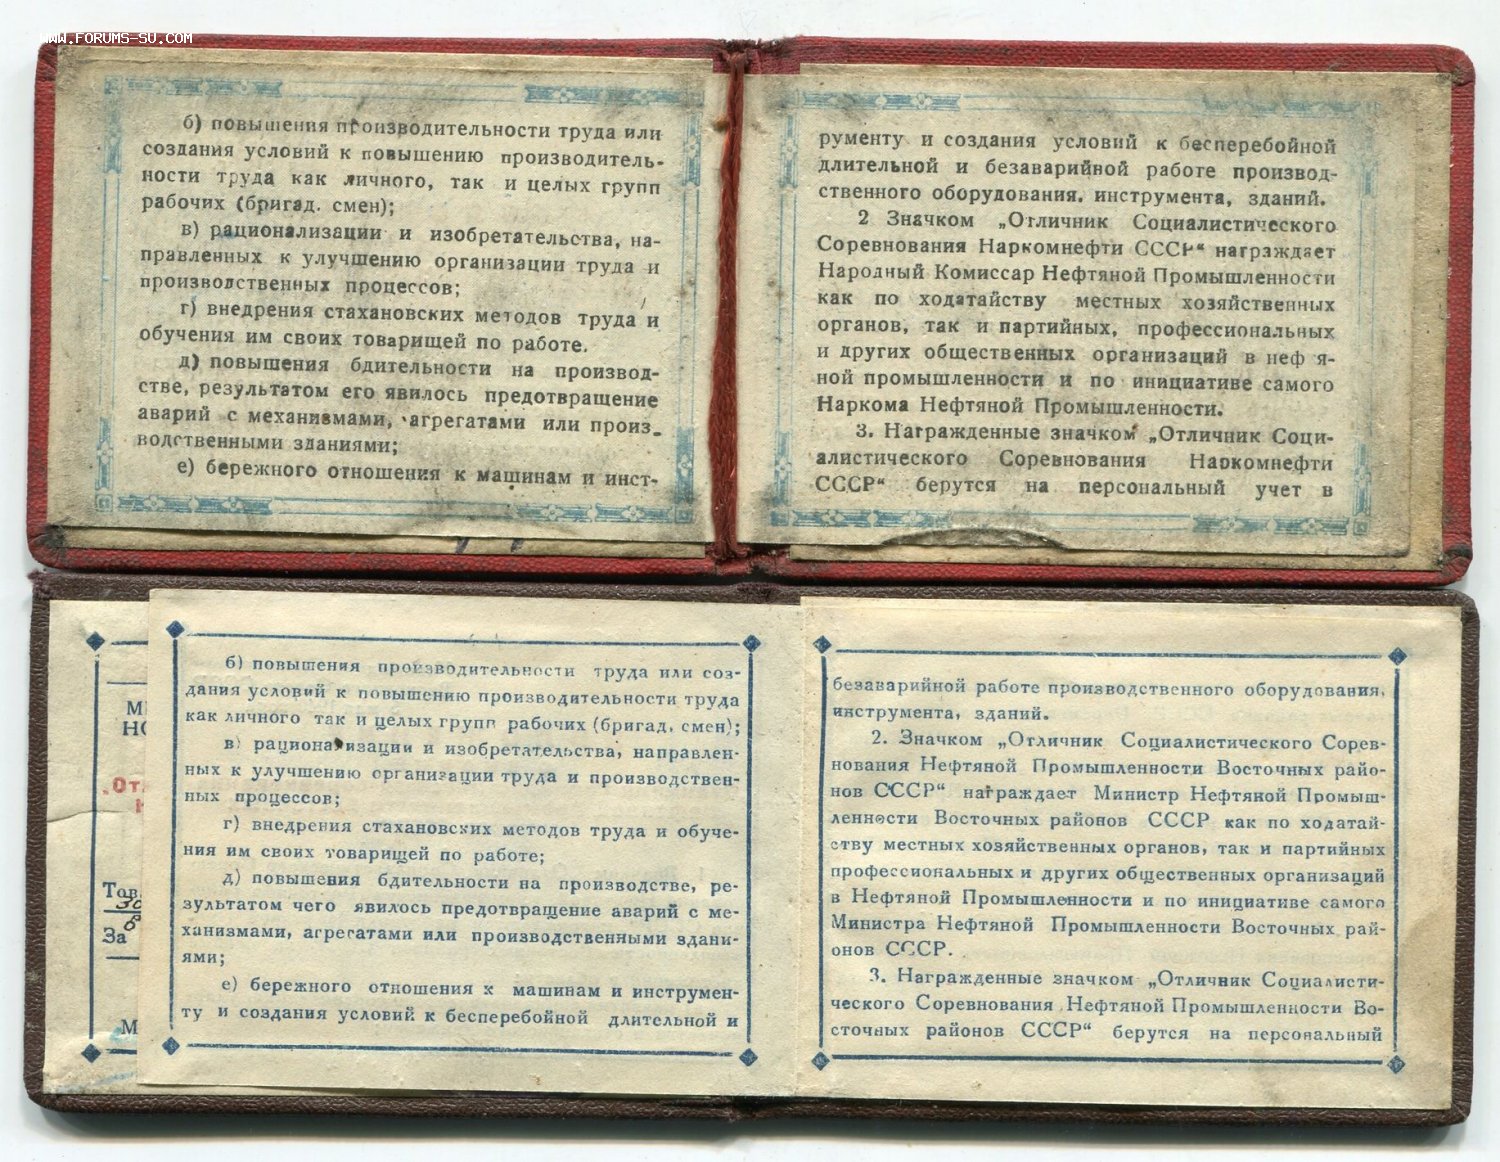 WWW.FORUMS-SU.COM
б) повышения производительности труда или
создания условий к повышению производитель-
ности труда как личного, так и целых групп
рабочих (бригад. смен);
в) рационализации и изобретательства, на-
правленных к улучшению организации труда и
производственных процессов;
г) внедрения стахановских методов труда и
обучения им своих товарищей по работе.
д) повышения бдительности на производ-
стве, результатом его явилось предотвращение
аварий с механизмами, агрегатами или произ-
водственными зданиями;
е) бережного отношения к машинам и инст-
рументу и создания условий к бесперебойной
длительной и безаварийной работе производ-
ственного оборудования. инструмента, зданий.
2 Значком „Отличник Социалистического
Соревнования Наркомнефти СССР“ награждает
Народный Комиссар Нефтяной Промышленности
как по ходатайству местных хозяйственных
органов, так и партийных, профессиональных
и других общественных организаций в неф я-
ной промышленности и по инициативе самого
Наркома Нефтяной Промышленности.
3. Награжденные значком „Отличник Соци-
алистического Соревнования Наркомнефти
СССР“ берутся на персональный учет в
МИ
НО
„ОТ
Тов.
За
М
б) повышения производительности труда или соз-
дания условий к повышению производительности труда
как личного так и целых групп рабочих (бригад, смен);
в) рационализации и изобретательства, направлен-
ных к улучшению организации труда и производствен-
ных процессов;
г) внедрения стахановских методов труда и обуче-
ния им своих товарищей по работе;
д) повышения бдительности на производстве, ре-
зультатом чего явилось предотвращение аварий с ме-
ханизмами, агрегатами или производственными здани-
ями;
е) бережного отношения к машинам и инструмен-
ту и создания условий к бесперебойной длительной и
безаварийной работе производственного оборудования,
инструмента, зданий.
2. Значком „Отличник Социалистического Сорев-
нования Нефтяной Промышленности Восточных райо-
нов СССР“ награждает Министр Нефтяной Промыш-
ленности Восточных районов СССР как по ходатай-
ству местных хозяйственных органов, так и партийных
профессиональных и других общественных организаций
в Нефтяной Промышленности и по инициативе самого
Министра Нефтяной Промышленности Восточных рай-
онов СССР.
3. Награжденные значком „Отличник Социалисти-
ческого Соревнования Нефтяной Промышленности Во-
сточных районов СССР“ берутся на персональный